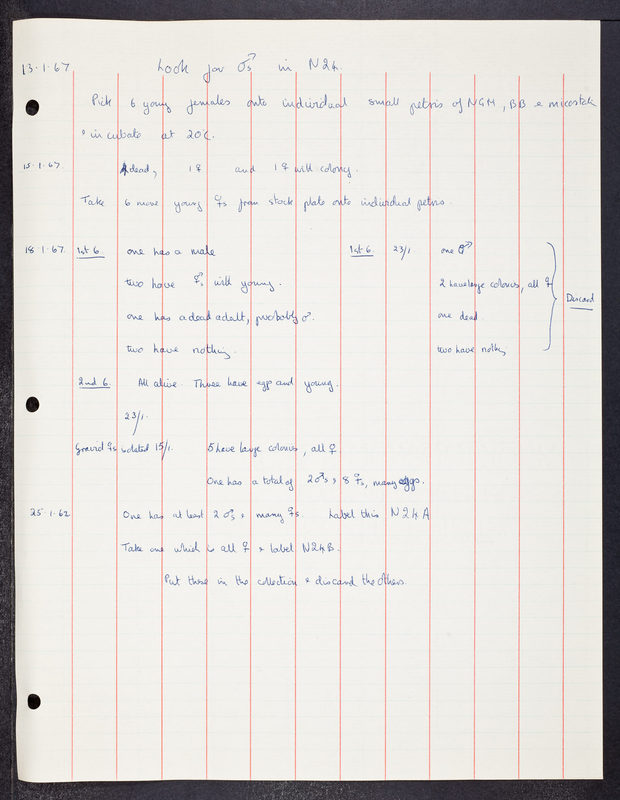 13.1.67 Look for ♂s in N24.
Pick 6 young females onto individual small petris of NGM, BB &
& incubate at 20C.
15.1.67. dead, 1♀ and 1♀ with colony.
Take 6 more young ♀s from stock plate onto individual petris.
18.1.67. 1st 6. one has a male 1st 6 23/1. one ♂
two have ♀s with young. 2 have large colonies, all ♀
one has a dead adult, probably ♂. one dead. Discard
two have nothing. two have nothing
2nd 6. All alive. Three have eggs and young.
23/1.
Gravid ♀s isolated 15/1. 5 have large colonies, all ♀
One has a total of 2♂s, 8♀s, many eggs.
25.1.62 One has at least 2♂s & many ♀s. Label this N24A
Take one which is all ♀ & label N24B.
Put these in the collection & discard the others.